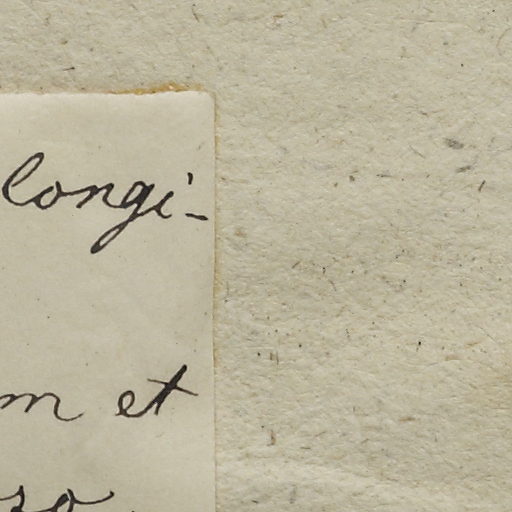 longi-
m et
so